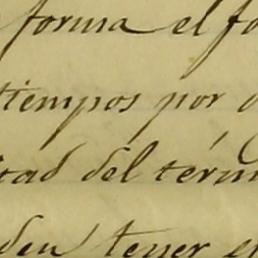 forma el fo
tiempos por
tad del térm
den tener e